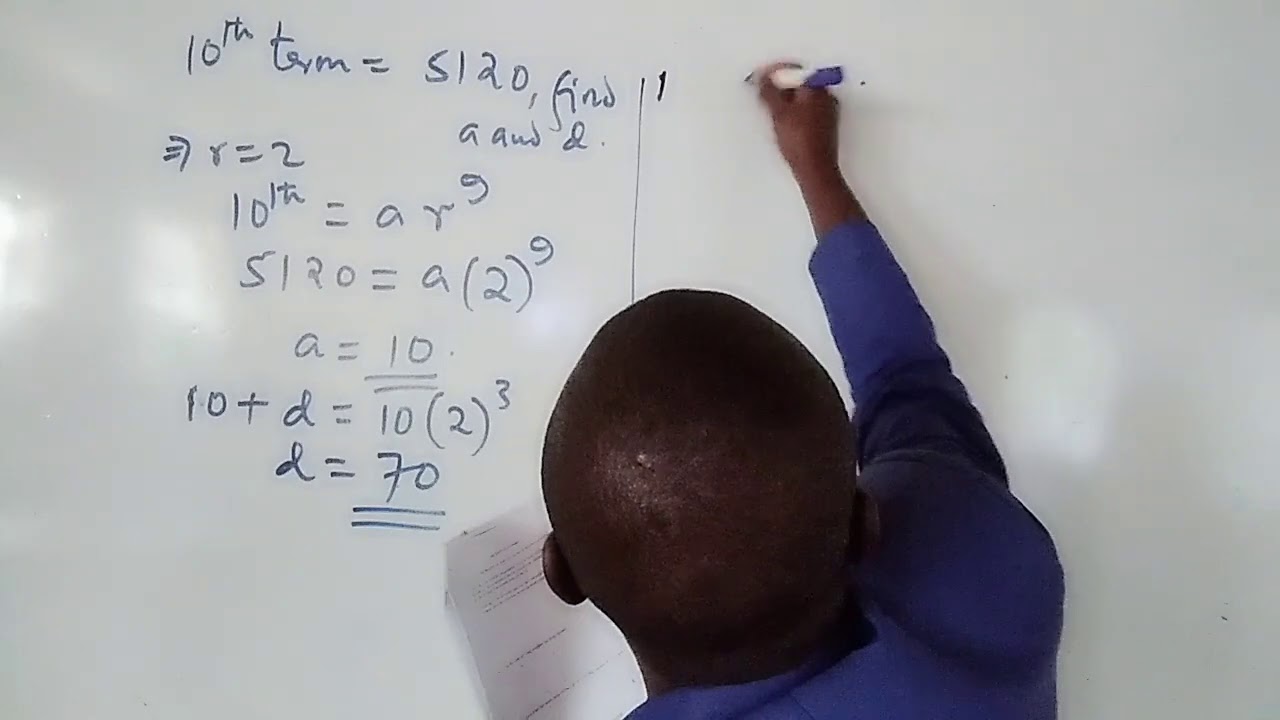 10th term = 5120, find
a and d.
⇒ r = 2
10th = a r⁹
5120 = a (2)⁹
a = 10.
10 + d = 10 (2)³
d = 70
1